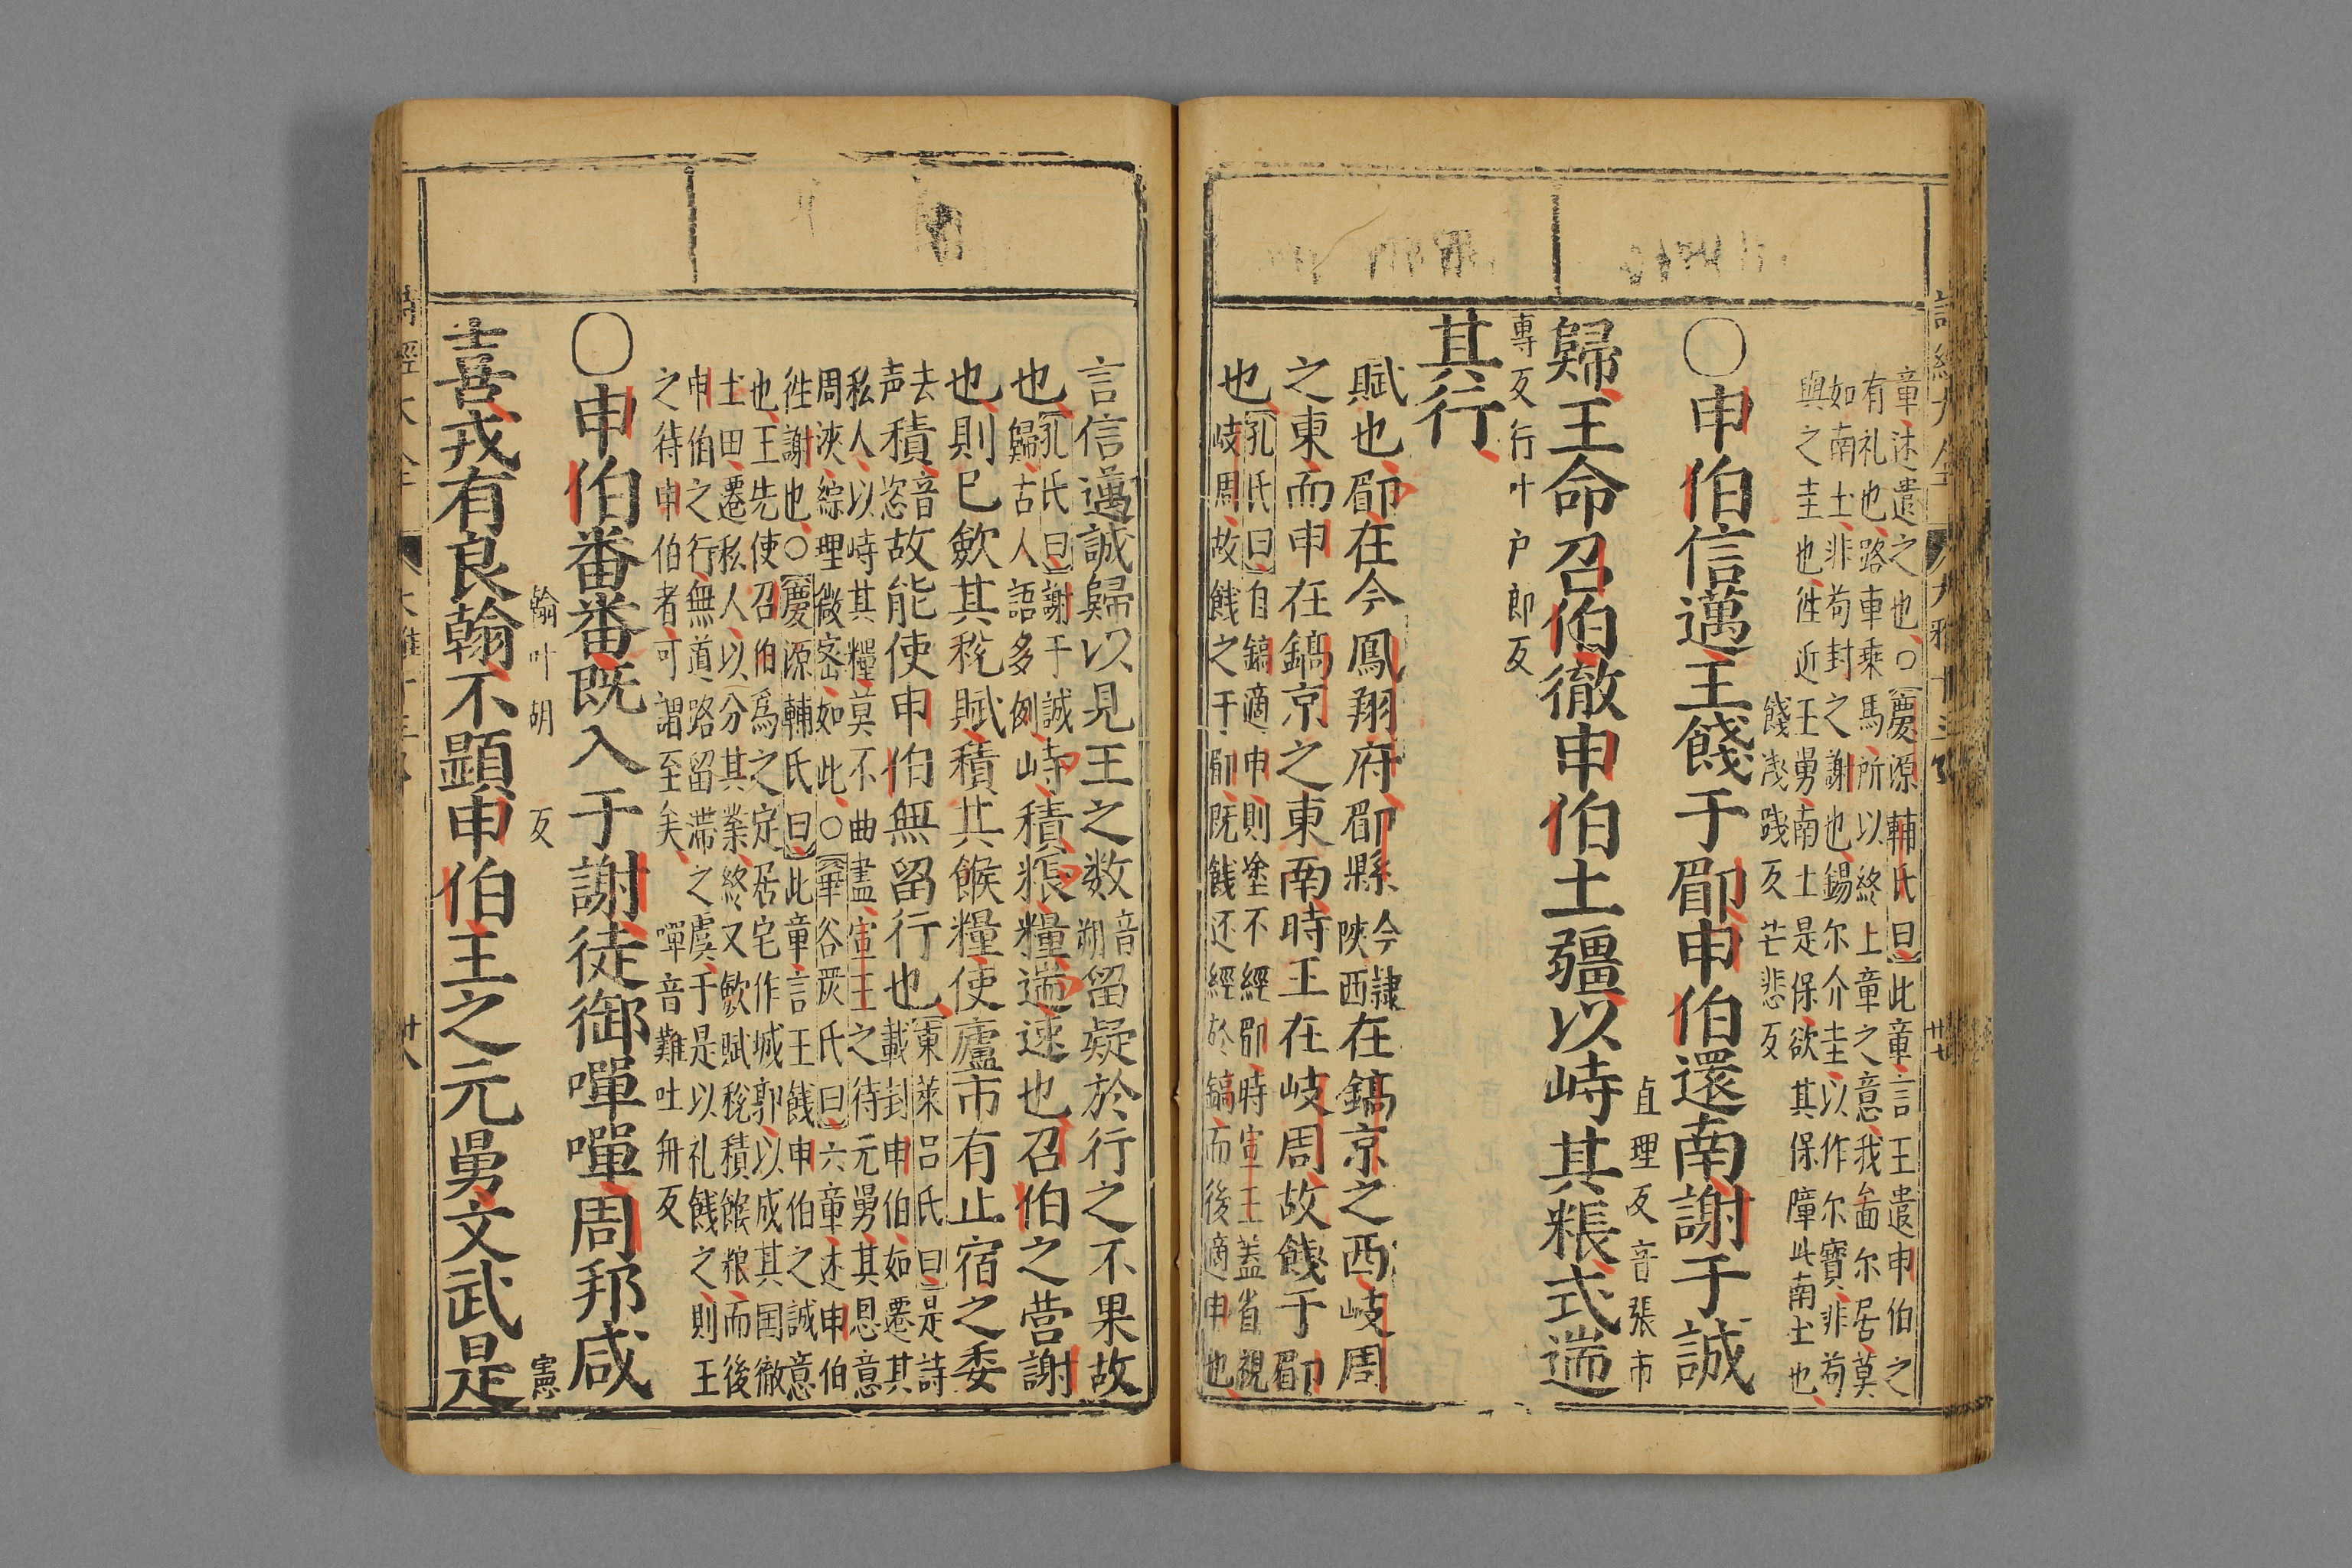 章述遣之也○慶源輔氏曰此章言王遣申伯之
有礼也路車乗馬所以終上章之意我啚尔居莫
如南土非苟封之謝也錫尔介圭以作尔寶非苟
與之圭也徃近王舅南土是保欲其保障此南土也
餞淺踐反芒悲反
○申伯信邁王餞于郿申伯還南謝于誠
直理反音張市
歸王命召伯徹申伯土疆以峙其粻式遄
專反行叶户郎反
其行
賦也郿在今鳳翔府郿縣今隷陝西在鎬京之西岐周
之東而申在鎬京之東南時王在岐周故餞于郿
也孔氏曰自鎬適申則塗不經郿時宣王蓋省視
岐周故餞之于郿既餞还經於鎬而後適申也
言信邁誠歸以見王之数音朔留疑於行之不果故
也孔氏曰謝于誠歸古人語多例峙積粻糧遄速也召伯之营謝
也則已歛其稅賦積其餱糧使廬市有止宿之委
去声積音恣故能使申伯無留行也東萊吕氏曰是詩
載封申伯如遷其
私人以峙其糧莫不曲盡宣王之待元舅其恩意
周浹綜理微宻如此○華谷嚴氏曰六章述申伯
徃謝也○慶源輔氏曰此章言王餞申伯之誠意
也王先使召伯爲之定居宅作城郭以成其国徹
土田遷私人以分其業終又歛賦稅積餱粮而後
申伯之行無道路留滞之虞于是以礼餞之則王
之待申伯者可謂至矣
嘽音難吐丹反
○申伯番番既入于謝徒御嘽嘽周邦咸
翰叶胡反憲
喜戎有良翰不顯申伯王之元舅文武是